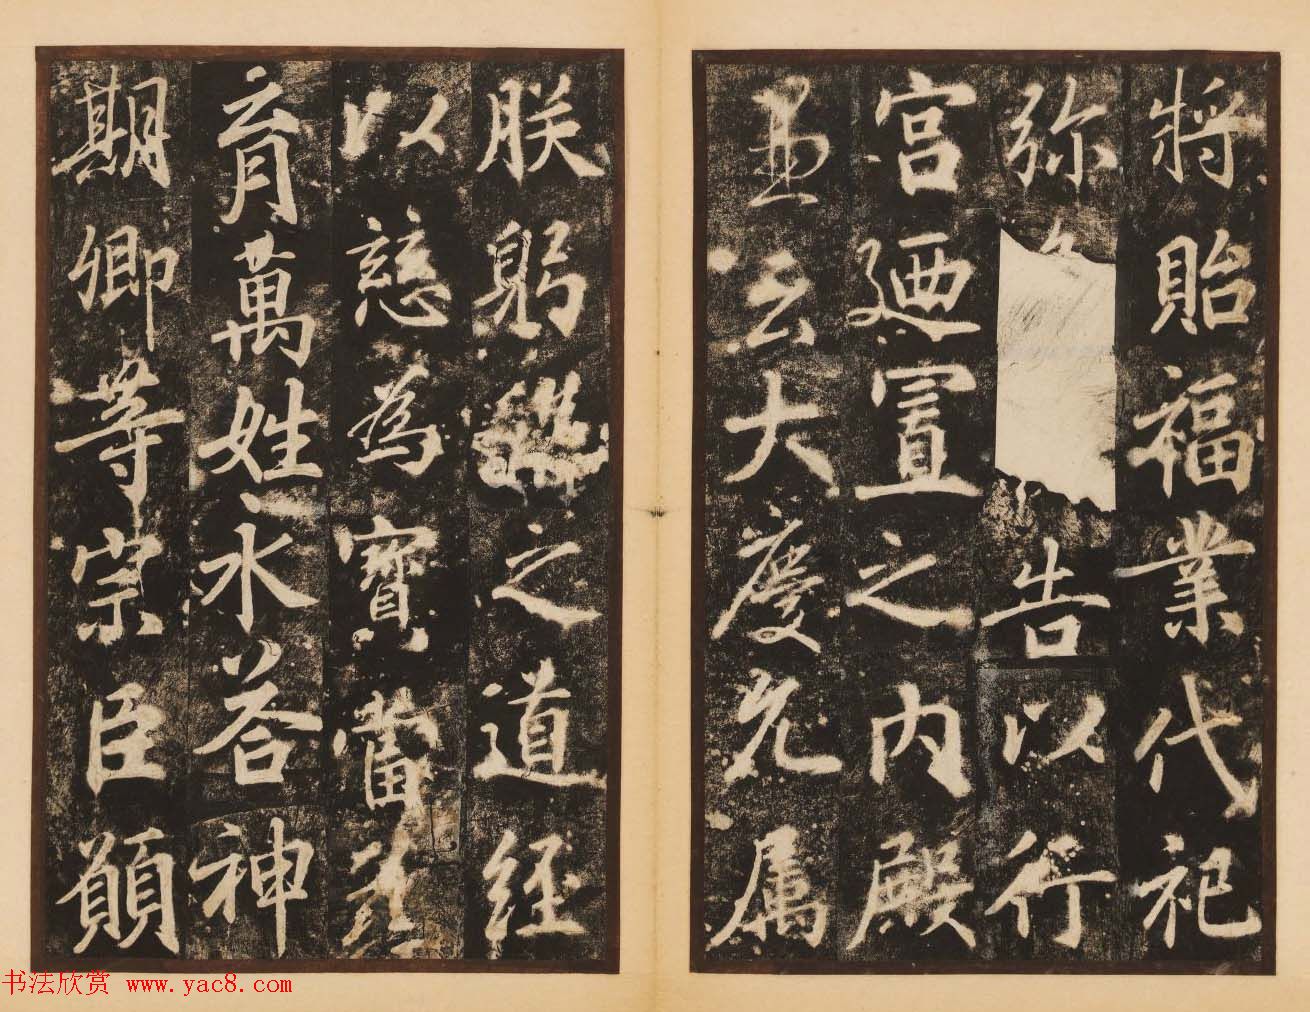 將貽福業代祀
弥告以行
宮廼置之内殿
云大慶允属
朕躬之道經
以慈為寶當
育萬姓永荅神
期卿等宗臣
书法欣赏 www.yac8.com